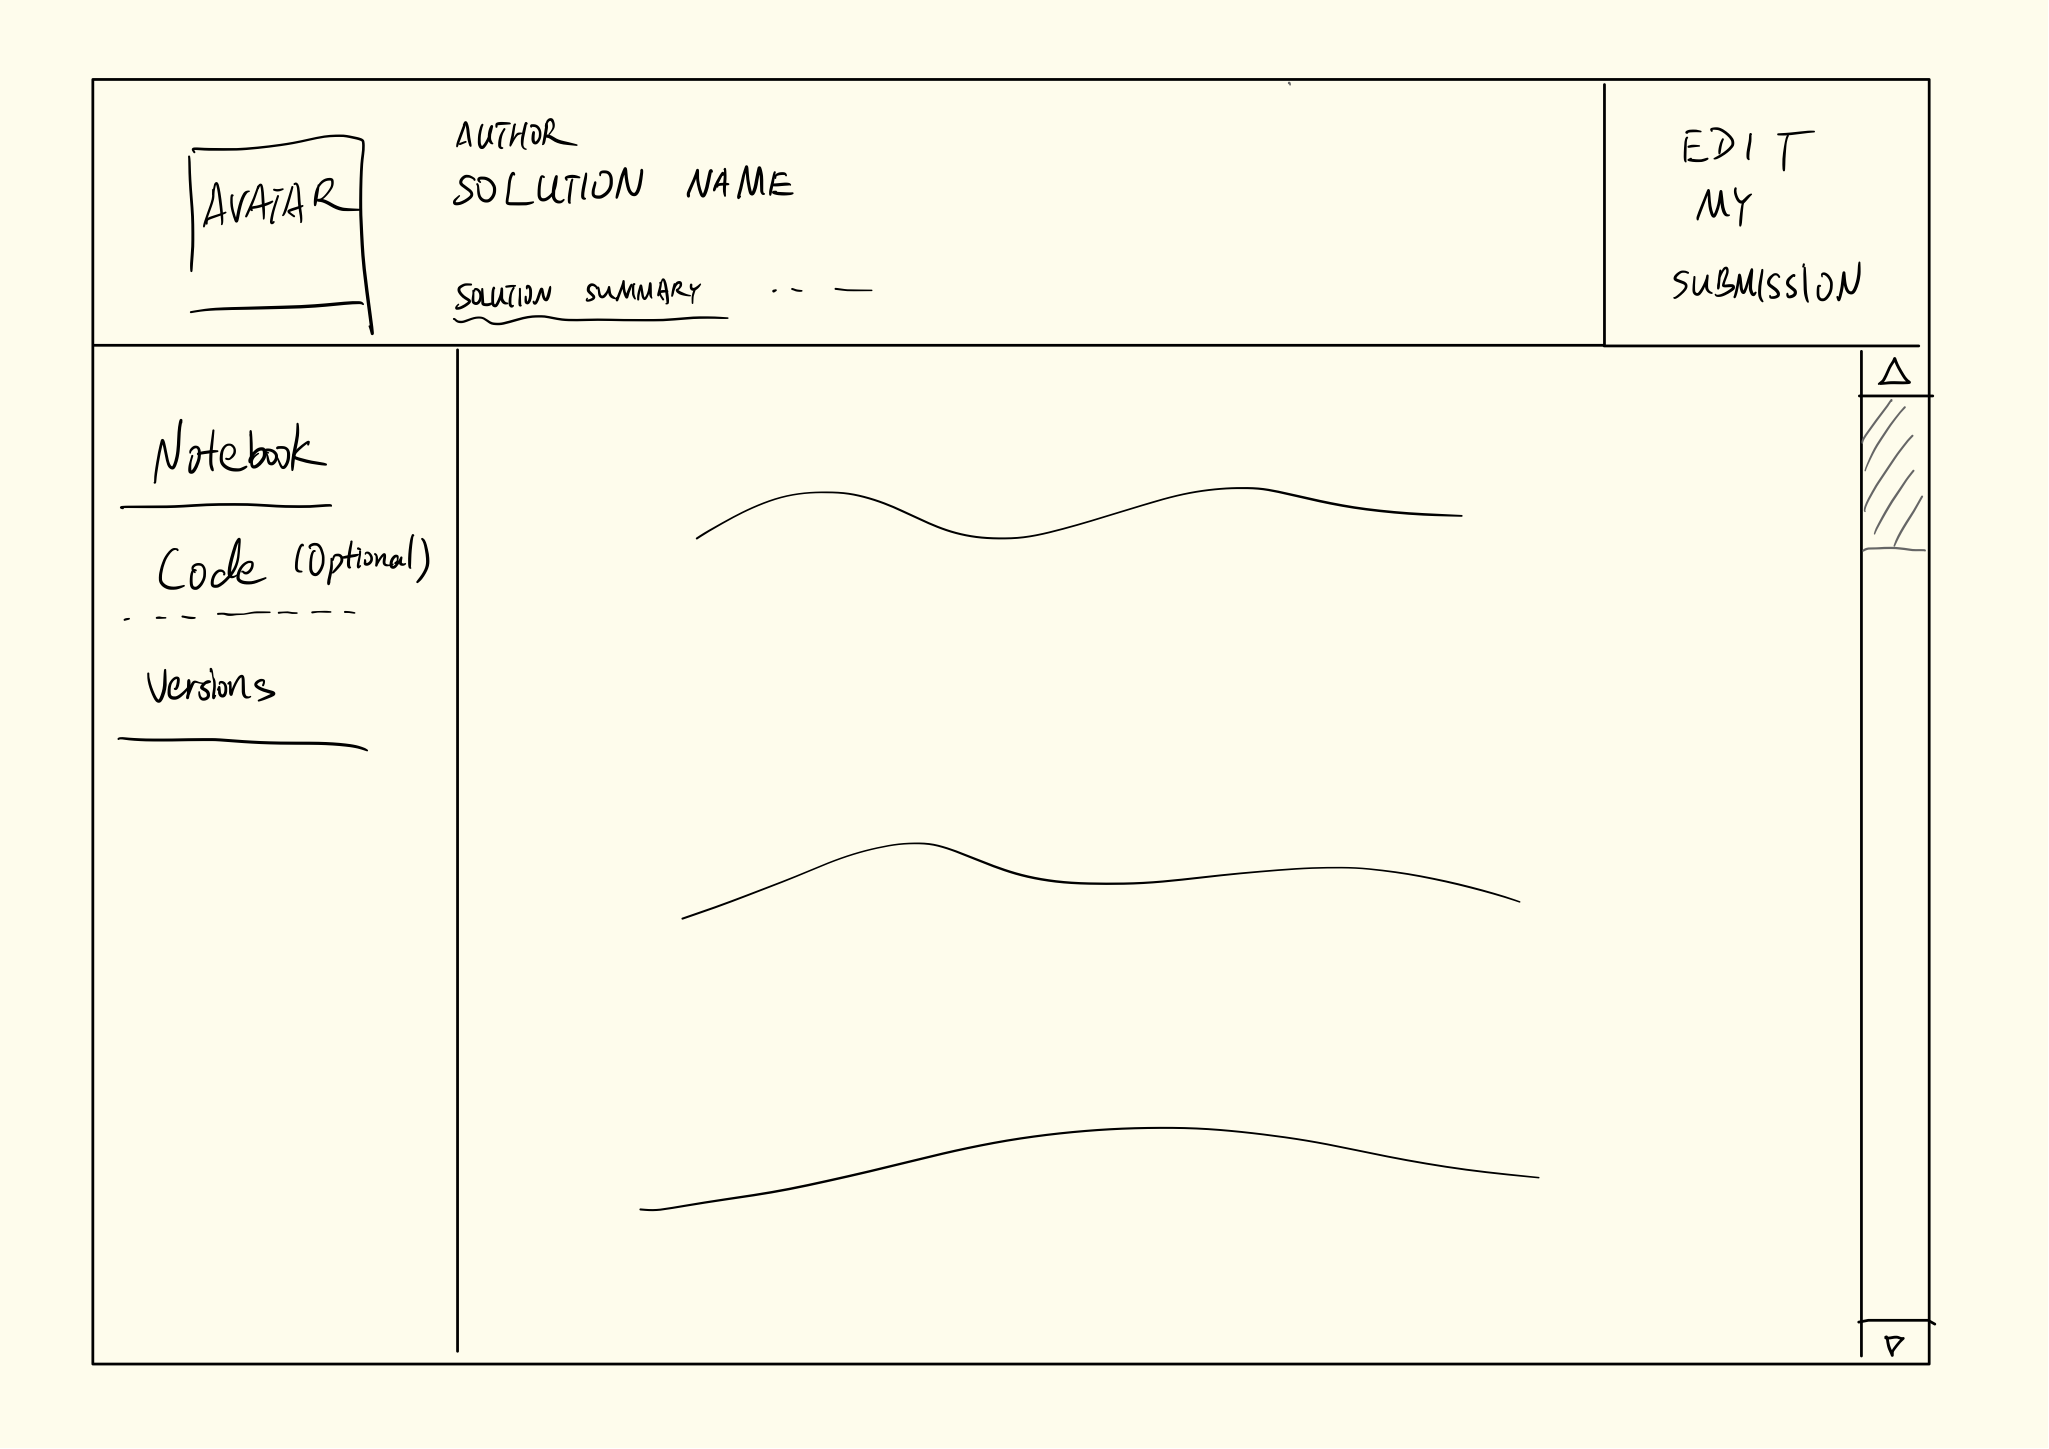 AVATAR
AUTHOR
SOLUTION NAME
SOLUTION SUMMARY
EDIT
MY
SUBMISSION
Notebook
Code (Optional)
Versions